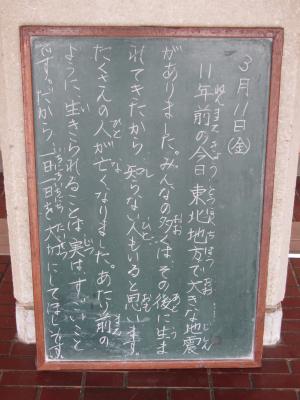 3月11日(金)
11年前の今日、東北地方で大きな地震
がありました。みんなの多くは、その後に生ま
れてきたから、知らない人もいると思います。
たくさんの人が亡くなりました。あたり前の
ように、生きられることは、実は、すごいこと
です。だから、一日一日を大切にしてほしいです。